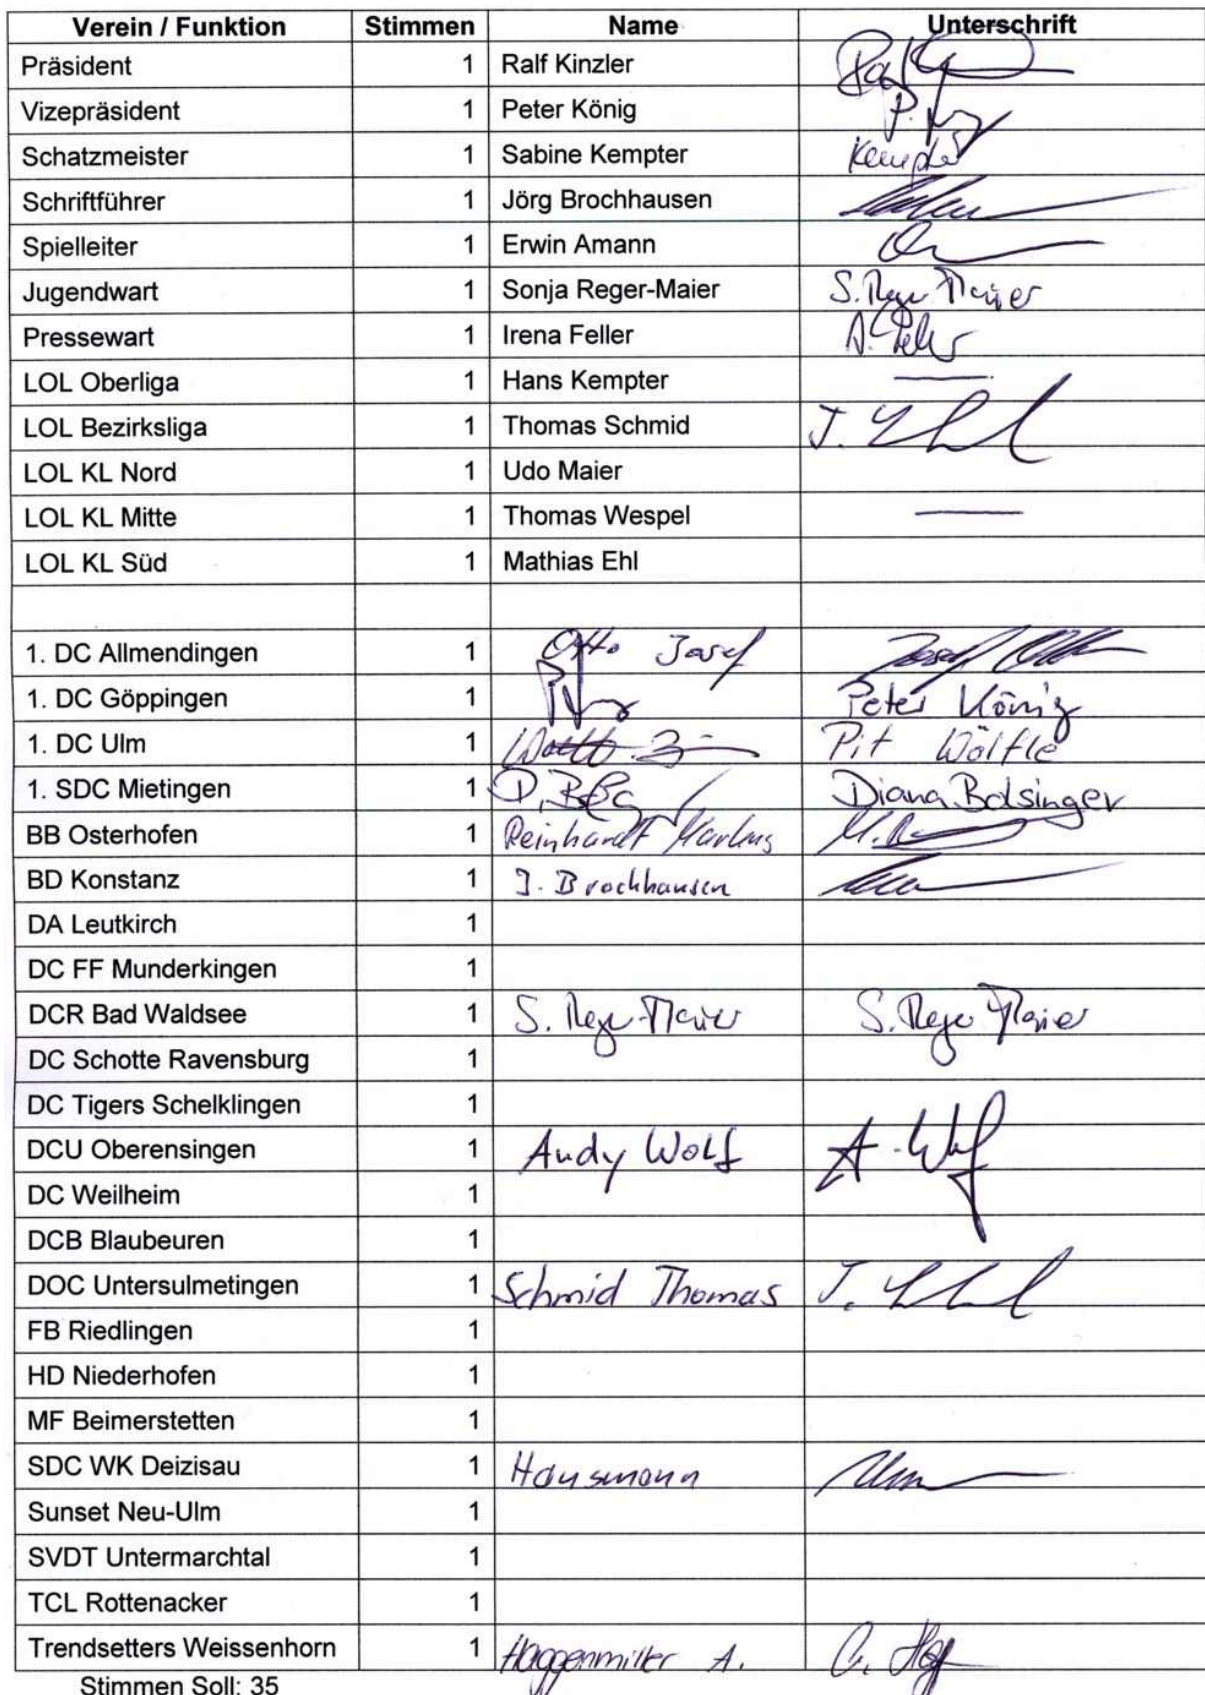 Verein / Funktion Stimmen Name Unterschrift
Präsident 1 Ralf Kinzler
Vizepräsident 1 Peter König
Schatzmeister 1 Sabine Kempter Kempter
Schriftführer 1 Jörg Brochhausen
Spielleiter 1 Erwin Amann
Jugendwart 1 Sonja Reger-Maier S. Reger Maier
Pressewart 1 Irena Feller
LOL Oberliga 1 Hans Kempter —
LOL Bezirksliga 1 Thomas Schmid
LOL KL Nord 1 Udo Maier
LOL KL Mitte 1 Thomas Wespel —
LOL KL Süd 1 Mathias Ehl
1. DC Allmendingen 1 Otto Josef Josef Otto
1. DC Göppingen 1 Peter König
1. DC Ulm 1 Pit Wölfle
1. SDC Mietingen 1 Diana Bolsinger
BB Osterhofen 1 Reinhardt Markus
BD Konstanz 1 J. Brochhausen
DA Leutkirch 1
DC FF Munderkingen 1
DCR Bad Waldsee 1 S. Reger-Maier S. Reger Maier
DC Schotte Ravensburg 1
DC Tigers Schelklingen 1
DCU Oberensingen 1 Andy Wolf A. Wolf
DC Weilheim 1
DCB Blaubeuren 1
DOC Untersulmetingen 1 Schmid Thomas
FB Riedlingen 1
HD Niederhofen 1
MF Beimerstetten 1
SDC WK Deizisau 1 Hausmann
Sunset Neu-Ulm 1
SVDT Untermarchtal 1
TCL Rottenacker 1
Trendsetters Weissenhorn 1 Haggenmiller A.
Stimmen Soll: 35